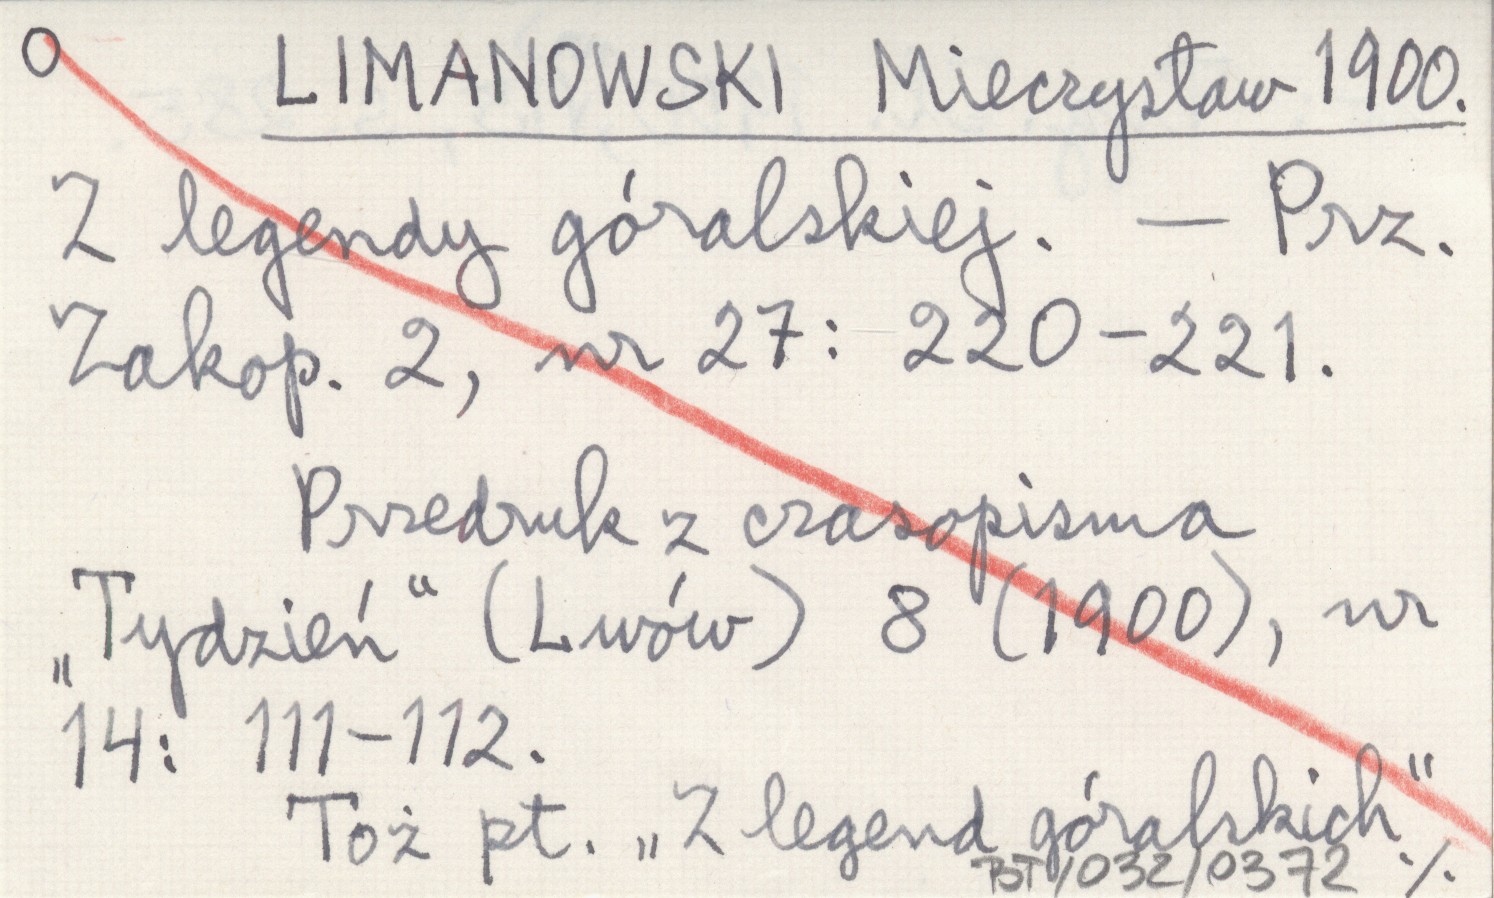 O LIMANOWSKI Mieczysław 1900.
Z legendy góralskiej. — Prz.
Zakop. 2, nr 27: 220-221.
Przedruk z czasopisma
„Tydzień“ (Lwów) 8 (1900), nr
14: 111-112.
Toż pt. „Z legend góralskich“
BT/032/0372 ./.